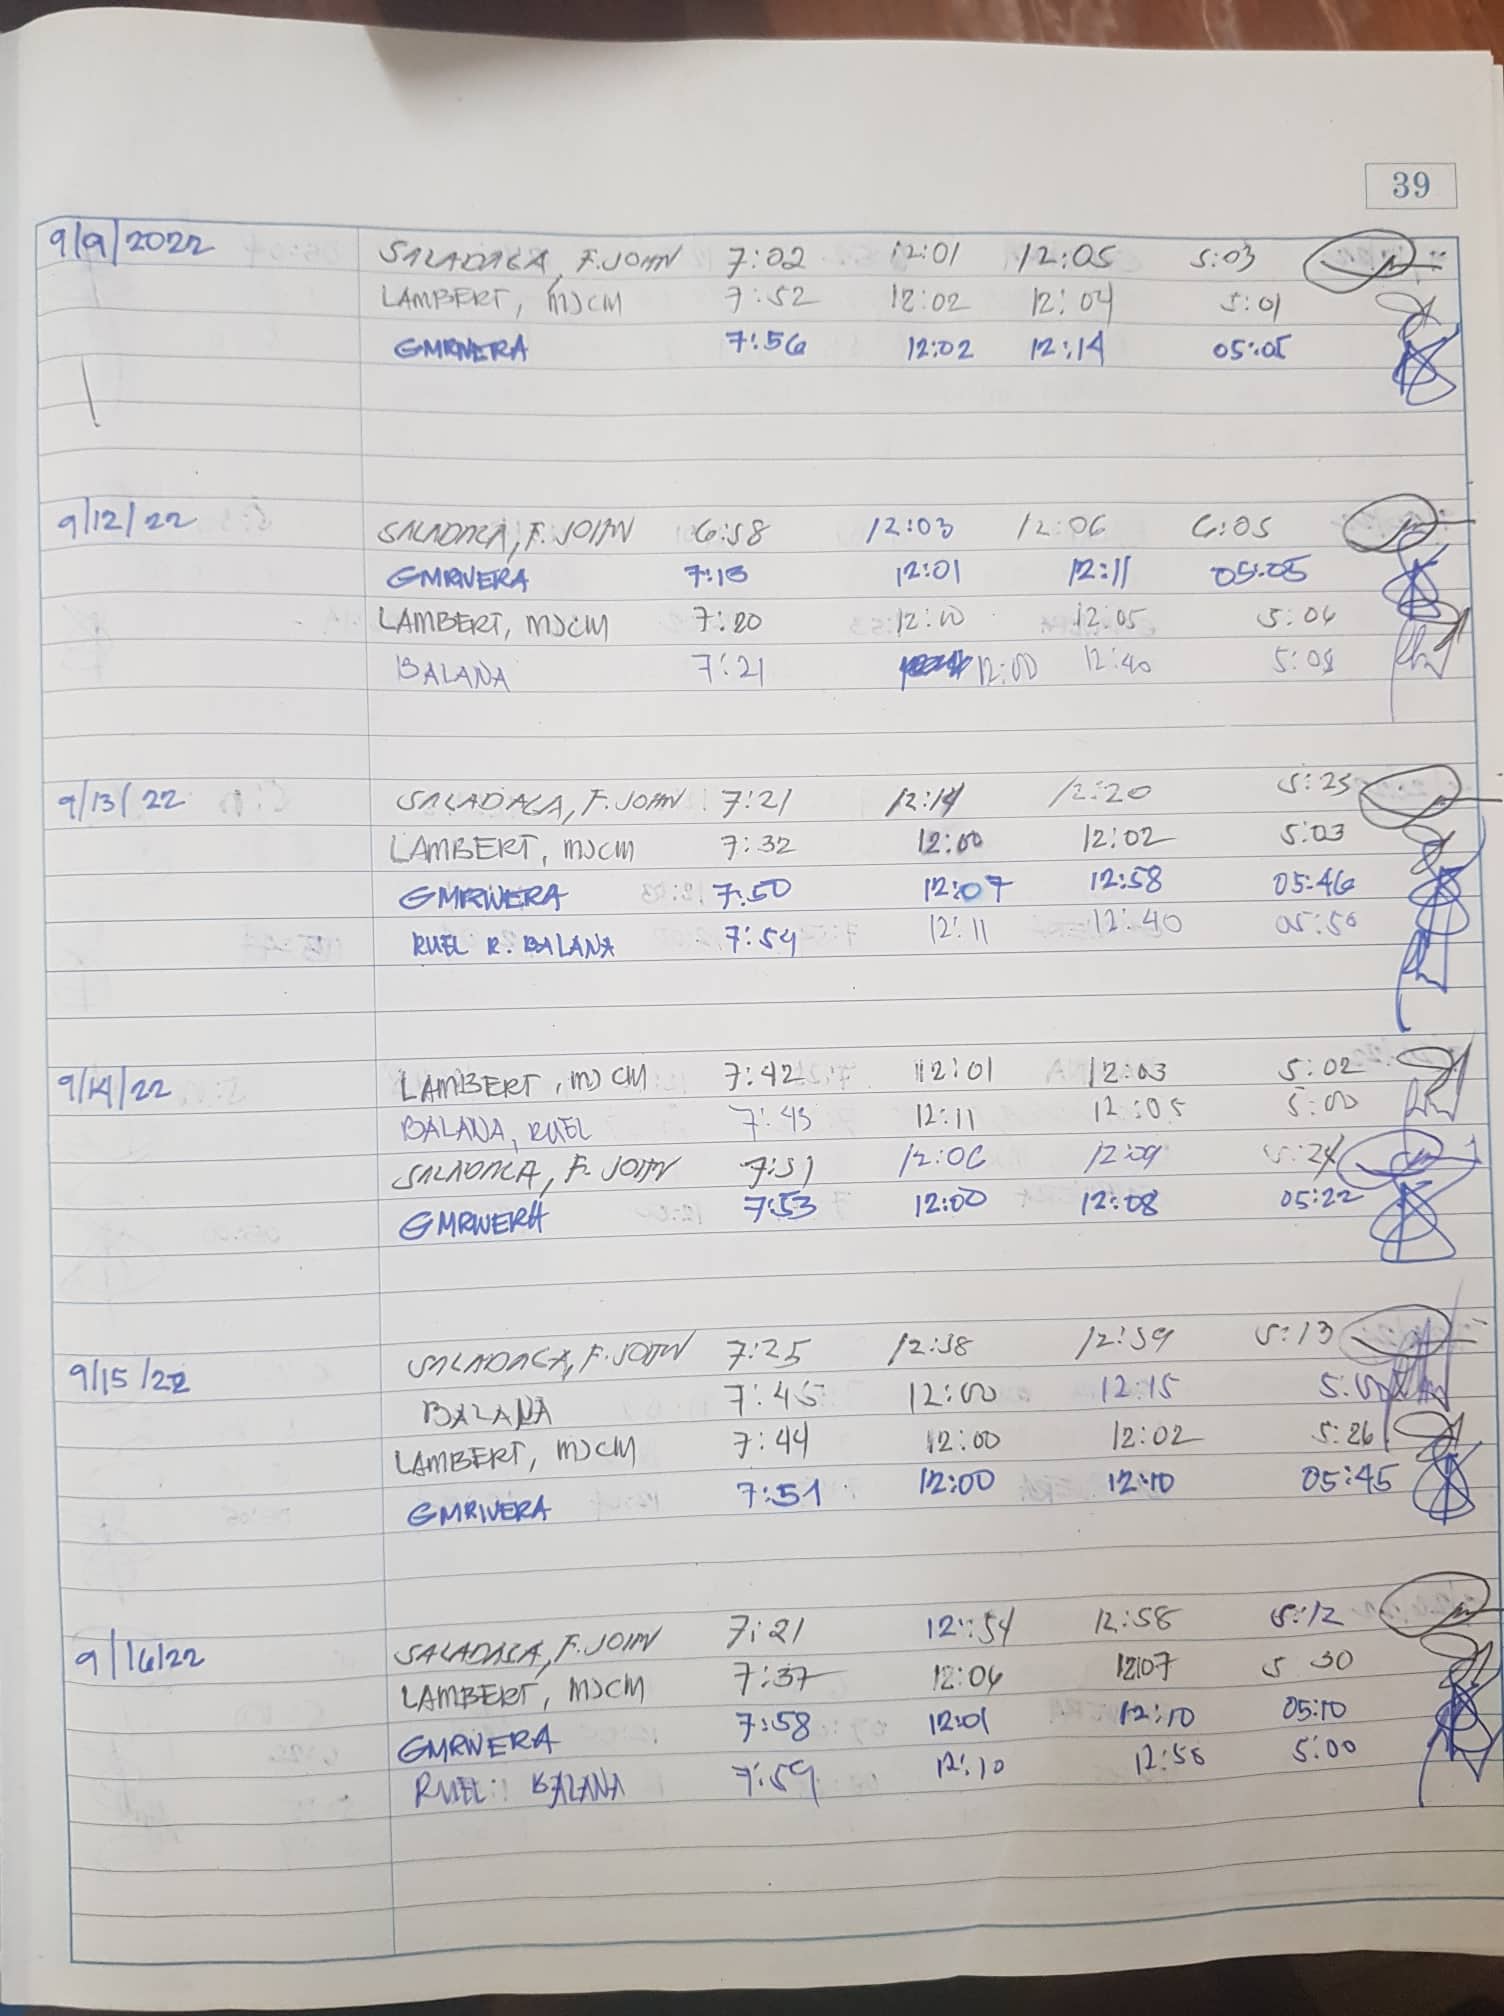 39
9/9/2022 SALADAGA, F. JOHN 7:02 12:01 12:05 5:03
LAMBERT, MJCM 7:52 12:02 12:04 5:01
GMRIVERA 7:56 12:02 12:14 05:05
9/12/22 SALADAGA, F. JOHN 6:58 12:03 12:06 6:05
GMRIVERA 7:13 12:01 12:11 05:05
LAMBERT, MJCM 7:20 12:00 12:05 5:04
BALANA 7:21 12:00 12:40 5:08
9/13/22 SALADAGA, F. JOHN 7:21 12:14 12:20 5:25
LAMBERT, MJCM 7:32 12:00 12:02 5:03
GMRIVERA 7:50 12:07 12:58 05:46
RUEL R. BALANA 7:54 12:11 12:40 05:50
9/14/22 LAMBERT, MJCM 7:42 12:01 12:03 5:02
BALANA, RUEL 7:45 12:11 12:05 5:00
SALADAGA, F. JOHN 7:51 12:06 12:09 5:24
GMRIVERA 7:53 12:00 12:08 05:22
9/15/22 SALADAGA, F. JOHN 7:25 12:38 12:59 5:13
BALANA 7:45 12:00 12:15 5:00
LAMBERT, MJCM 7:44 12:00 12:02 5:26
GMRIVERA 7:51 12:00 12:10 05:45
9/16/22 SALADAGA, F. JOHN 7:21 12:54 12:58 5:12
LAMBERT, MJCM 7:37 12:04 12:07 5 30
GMRIVERA 7:58 12:01 12:10 05:10
RUEL BALANA 7:59 12:10 12:58 5:00